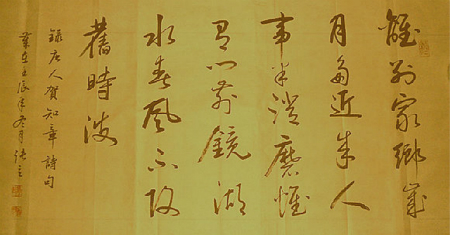 離別家鄉歲
月多近來人
事半消磨惟
有門前鏡湖
水春風不改
舊時波
錄唐人賀知章詩句
辰年冬月